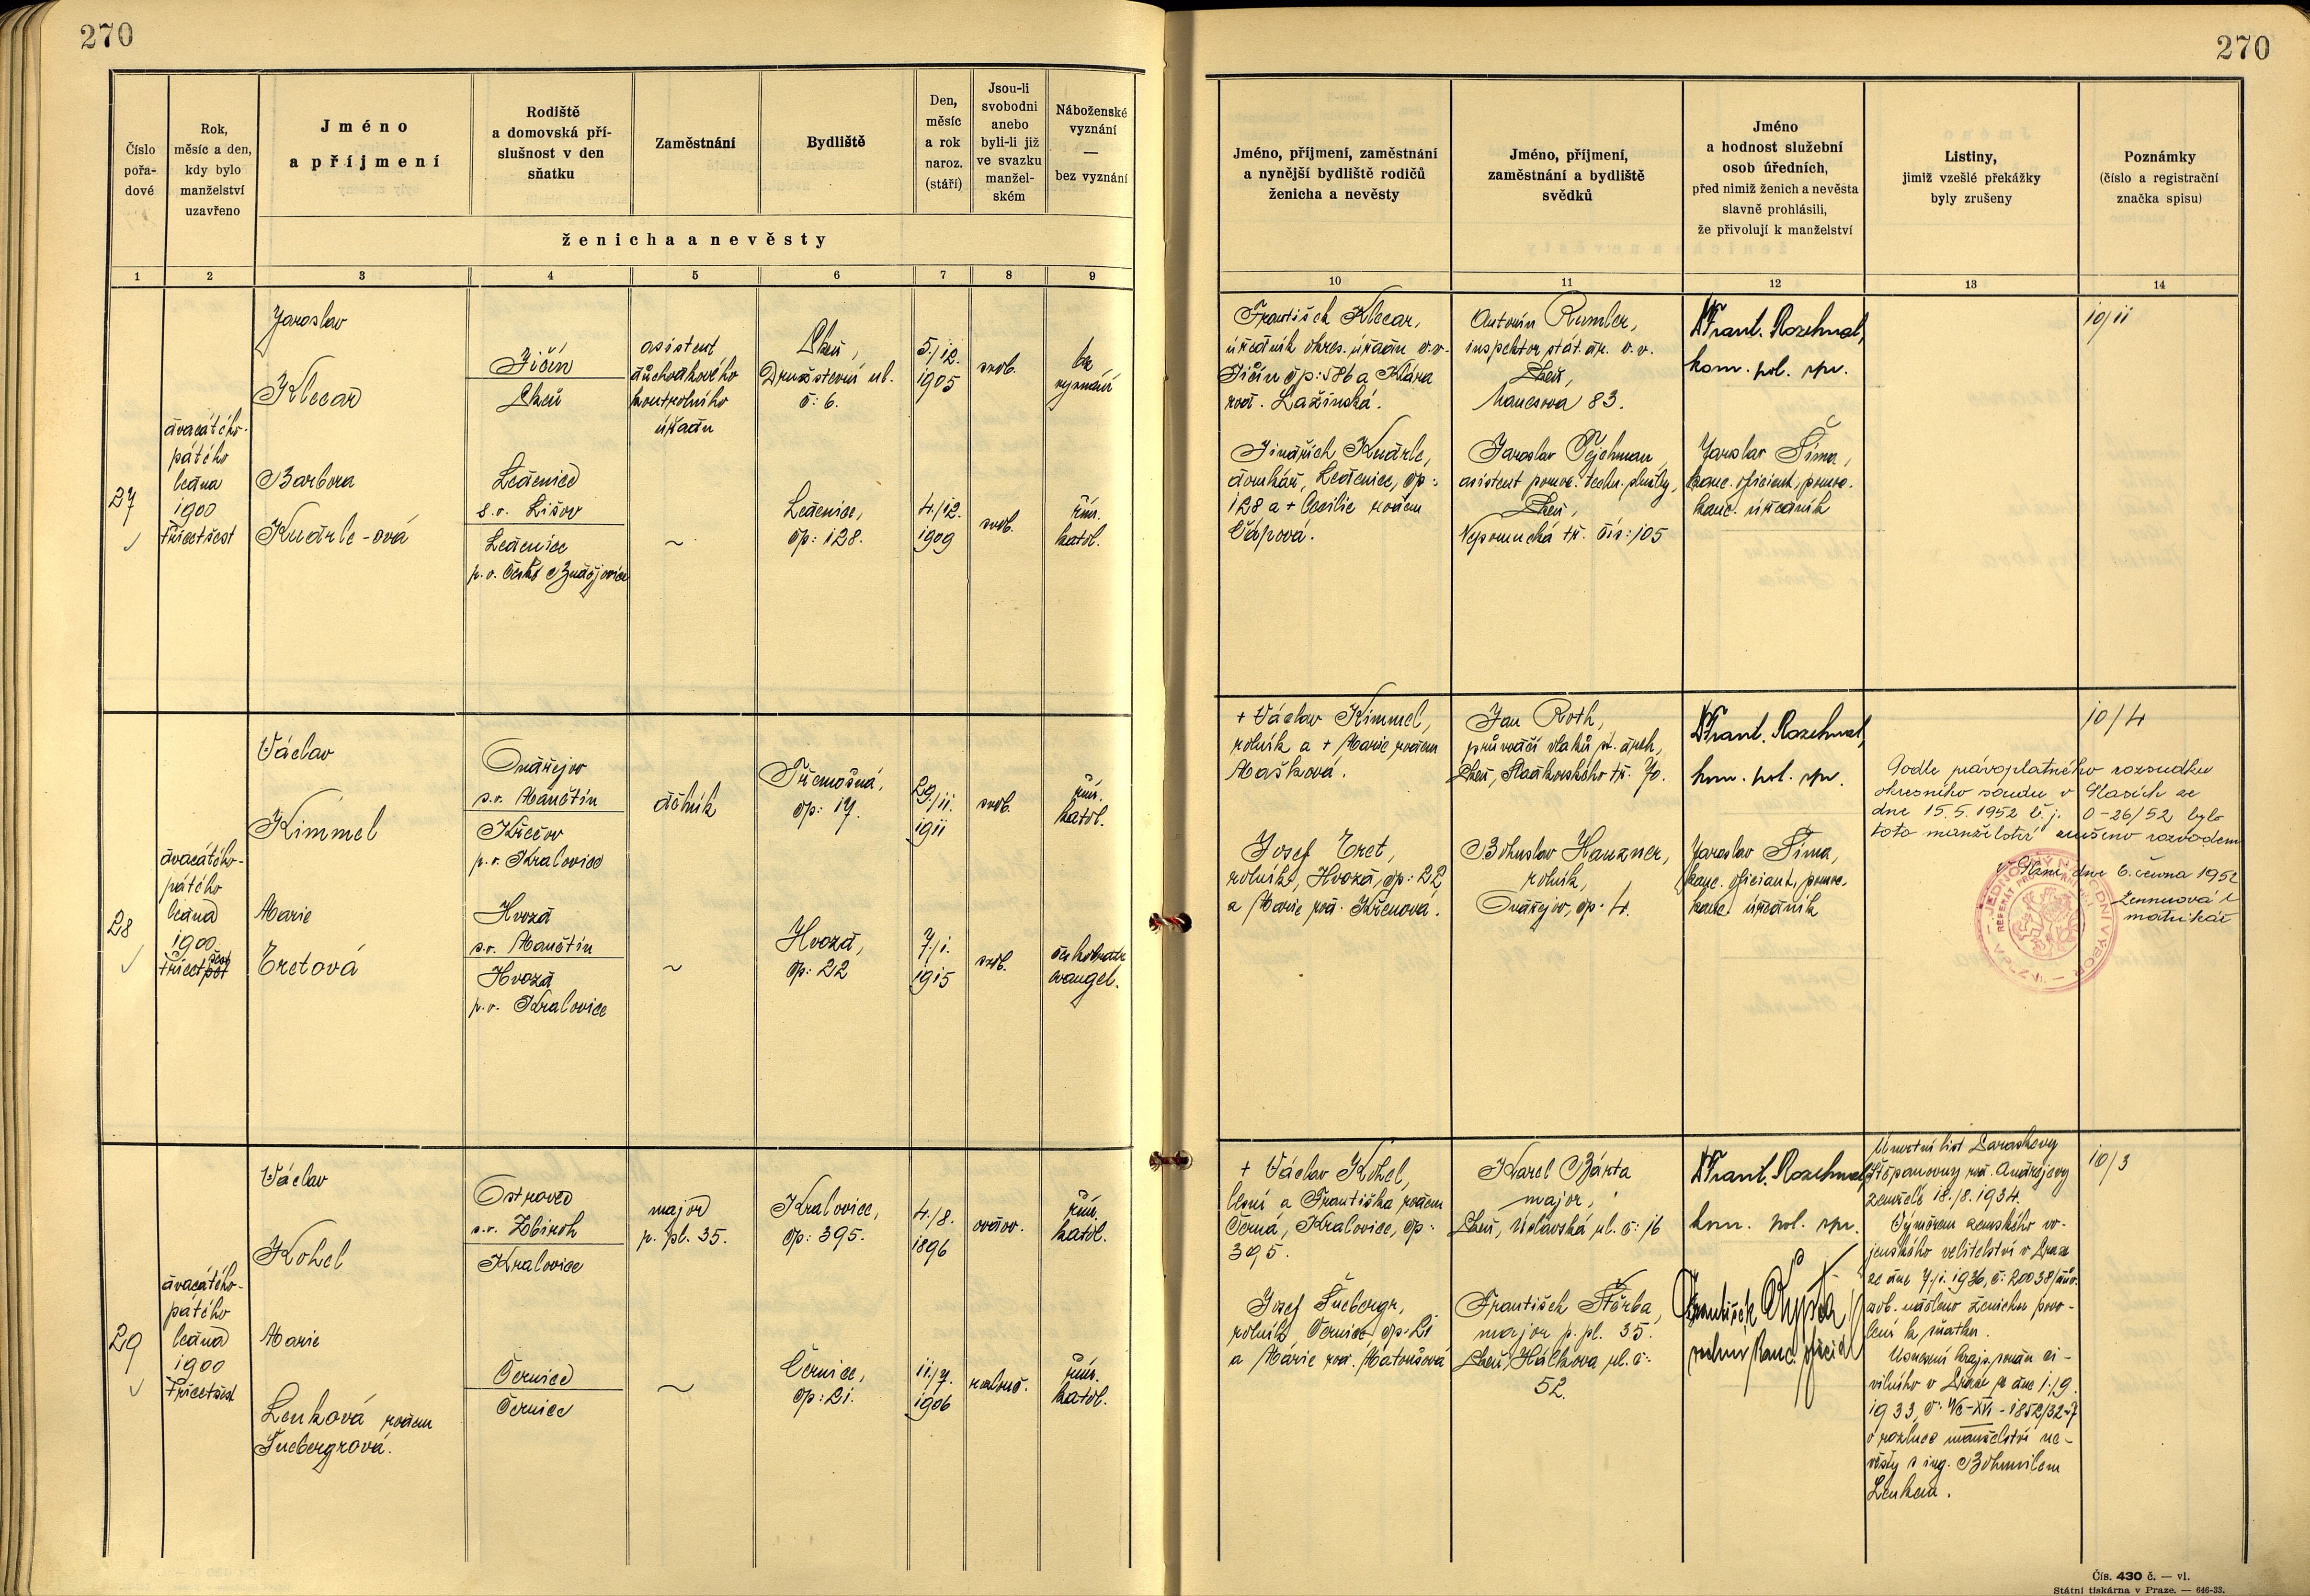 270
270
Číslo
pořa-
dové
Rok,
měsíc a den,
kdy bylo
manželství
uzavřeno
Jméno
a příjmení
Rodiště
a domovská pří-
slušnost v den
sňatku
Zaměstnání
Bydliště
Den,
měsíc
a rok
naroz.
(stáří)
Jsou-li
svobodni
anebo
byli-li již
ve svazku
manžel-
ském
Náboženské
vyznání
—
bez vyznání
ženicha a nevěsty
1
2
3
4
5
6
7
8
9
Jméno, příjmení, zaměstnání
a nynější bydliště rodičů
ženicha a nevěsty
Jméno, příjmení,
zaměstnání a bydliště
svědků
Jméno
a hodnost služební
osob úředních,
před nimiž ženich a nevěsta
slavně prohlásili,
že přivolují k manželství
Listiny,
jimiž vzešlé překážky
byly zrušeny
Poznámky
(číslo a registrační
značka spisu)
10
11
12
13
14
27
dvacátého-
pátého
ledna
1900
třicetšest
Jaroslav
Klecař
Jičín
Plzeň
asistent
důchodkového
kontrolního
úřadu
Plzeň,
Družstevní ul.
č: 6.
5./12.
1905
svob.
bez
vyznání
Barbora
Knärle-ová
Ledenice
s.o. Lišov
Ledenice
p.o. České Budějovice
~
Ledenice,
čp: 128.
4./12.
1909
svob.
řím.
katol.
František Klecar,
úředník okres. úřadu v.v.
Jičín čp: 586 a Klára
rod. Lažínská.
Jindřich Knärle,
Ledenice, čp:
128 a + Cecilie rodem
Čápová.
Antonín Rumler,
inspektor stát. dr. v.v.
Plzeň,
Mánesova 83.
Jaroslav Pejchman,
asistent pomoc. techn. služby,
Plzeň,
Nepomucká tř. čís: 105
Dr Frant. Rozehnal,
kom. pol. spr.
Jaroslav Šíma,
kanc. oficiant, pomoc.
kanc. úředník
10/11
28
dvacátého-
pátého
ledna
1900
třicet pět
šest
Václav
Kimmel
Ondřejov
s.o. Manětín
Křečov
p.o. Kralovice
dělník
Třemošná,
čp: 17.
29/11.
1911
svob.
řím.
katol.
Marie
Eretová
Hvozd
s.o. Manětín
Hvozd
p.o. Kralovice
~
Hvozd,
čp: 22
7./1.
1915
svob.
českobratr.
evangel.
+ Václav Kimmel,
rolník a + Marie rodem
Mašková.
Josef Eret,
rolník, Hvozd, čp: 22
a Marie rod. Křenová.
Jan Roth,
průvodčí vlaků st. drah,
Plzeň, Sladkovského tř. 70.
Bohuslav Hauzner,
rolník,
Ondřejov, čp. 4.
Dr Frant. Rozehnal,
kom. pol. spr.
Jaroslav Šíma,
kanc. oficiant, pomoc.
kanc. úředník
10/4
Podle právoplatného rozsudku
okresního soudu v Plasích ze
dne 15.5.1952 č.j. 0-26/52 bylo
toto manželství zrušeno rozvodem
V Plzni, dne 6. června 1952
matrikář
29
dvacátého-
pátého
ledna
1900
třicetšest
Václav
Kohel
Ostrovec
s.o. Zbiroh
Kralovice
major
p. pl. 35.
Kralovice,
čp: 395.
4./8.
1896
ovdov.
řím.
katol.
Marie
Lenková rodem
Šnebergrová.
Černice
Černice
~
Černice,
čp: 21.
11./7.
1906
rozlouč.
řím.
katol.
+ Václav Kohel,
lesní a Františka rodem
Černá, Kralovice, čp:
395.
Josef Šnebergr,
rolník, Černice čp: 21
a Marie rod. Matoušová
Karel Bárta
major,
Plzeň, Úslavská ul. č: 16
František Štěrba,
major p. pl. 35.
Plzeň, Hálkova ul. č:
52.
Dr Frant. Rozehnal,
kom. pol. spr.
František
10/3
Úmrtní list Paraskevy
Štěpanovny rod. Andrejevy
zemřelé 18./8. 1934.
Výměrem zemského vo-
jenského velitelství v Praze
ze dne 7./1. 1936, č: 20038/důvr.
uděleno ženichu povo-
lení k sňatku.
Usnesení kraj. soudu ci-
vilního v Praze ze dne 1./9.
1933, č: Nc-XVI-1852/32-7
o rozluce manželství ne-
věsty s ing. Bohumilem
Lenkem.
Čís. 430 č. — vl.
Státní tiskárna v Praze. — 646-33.